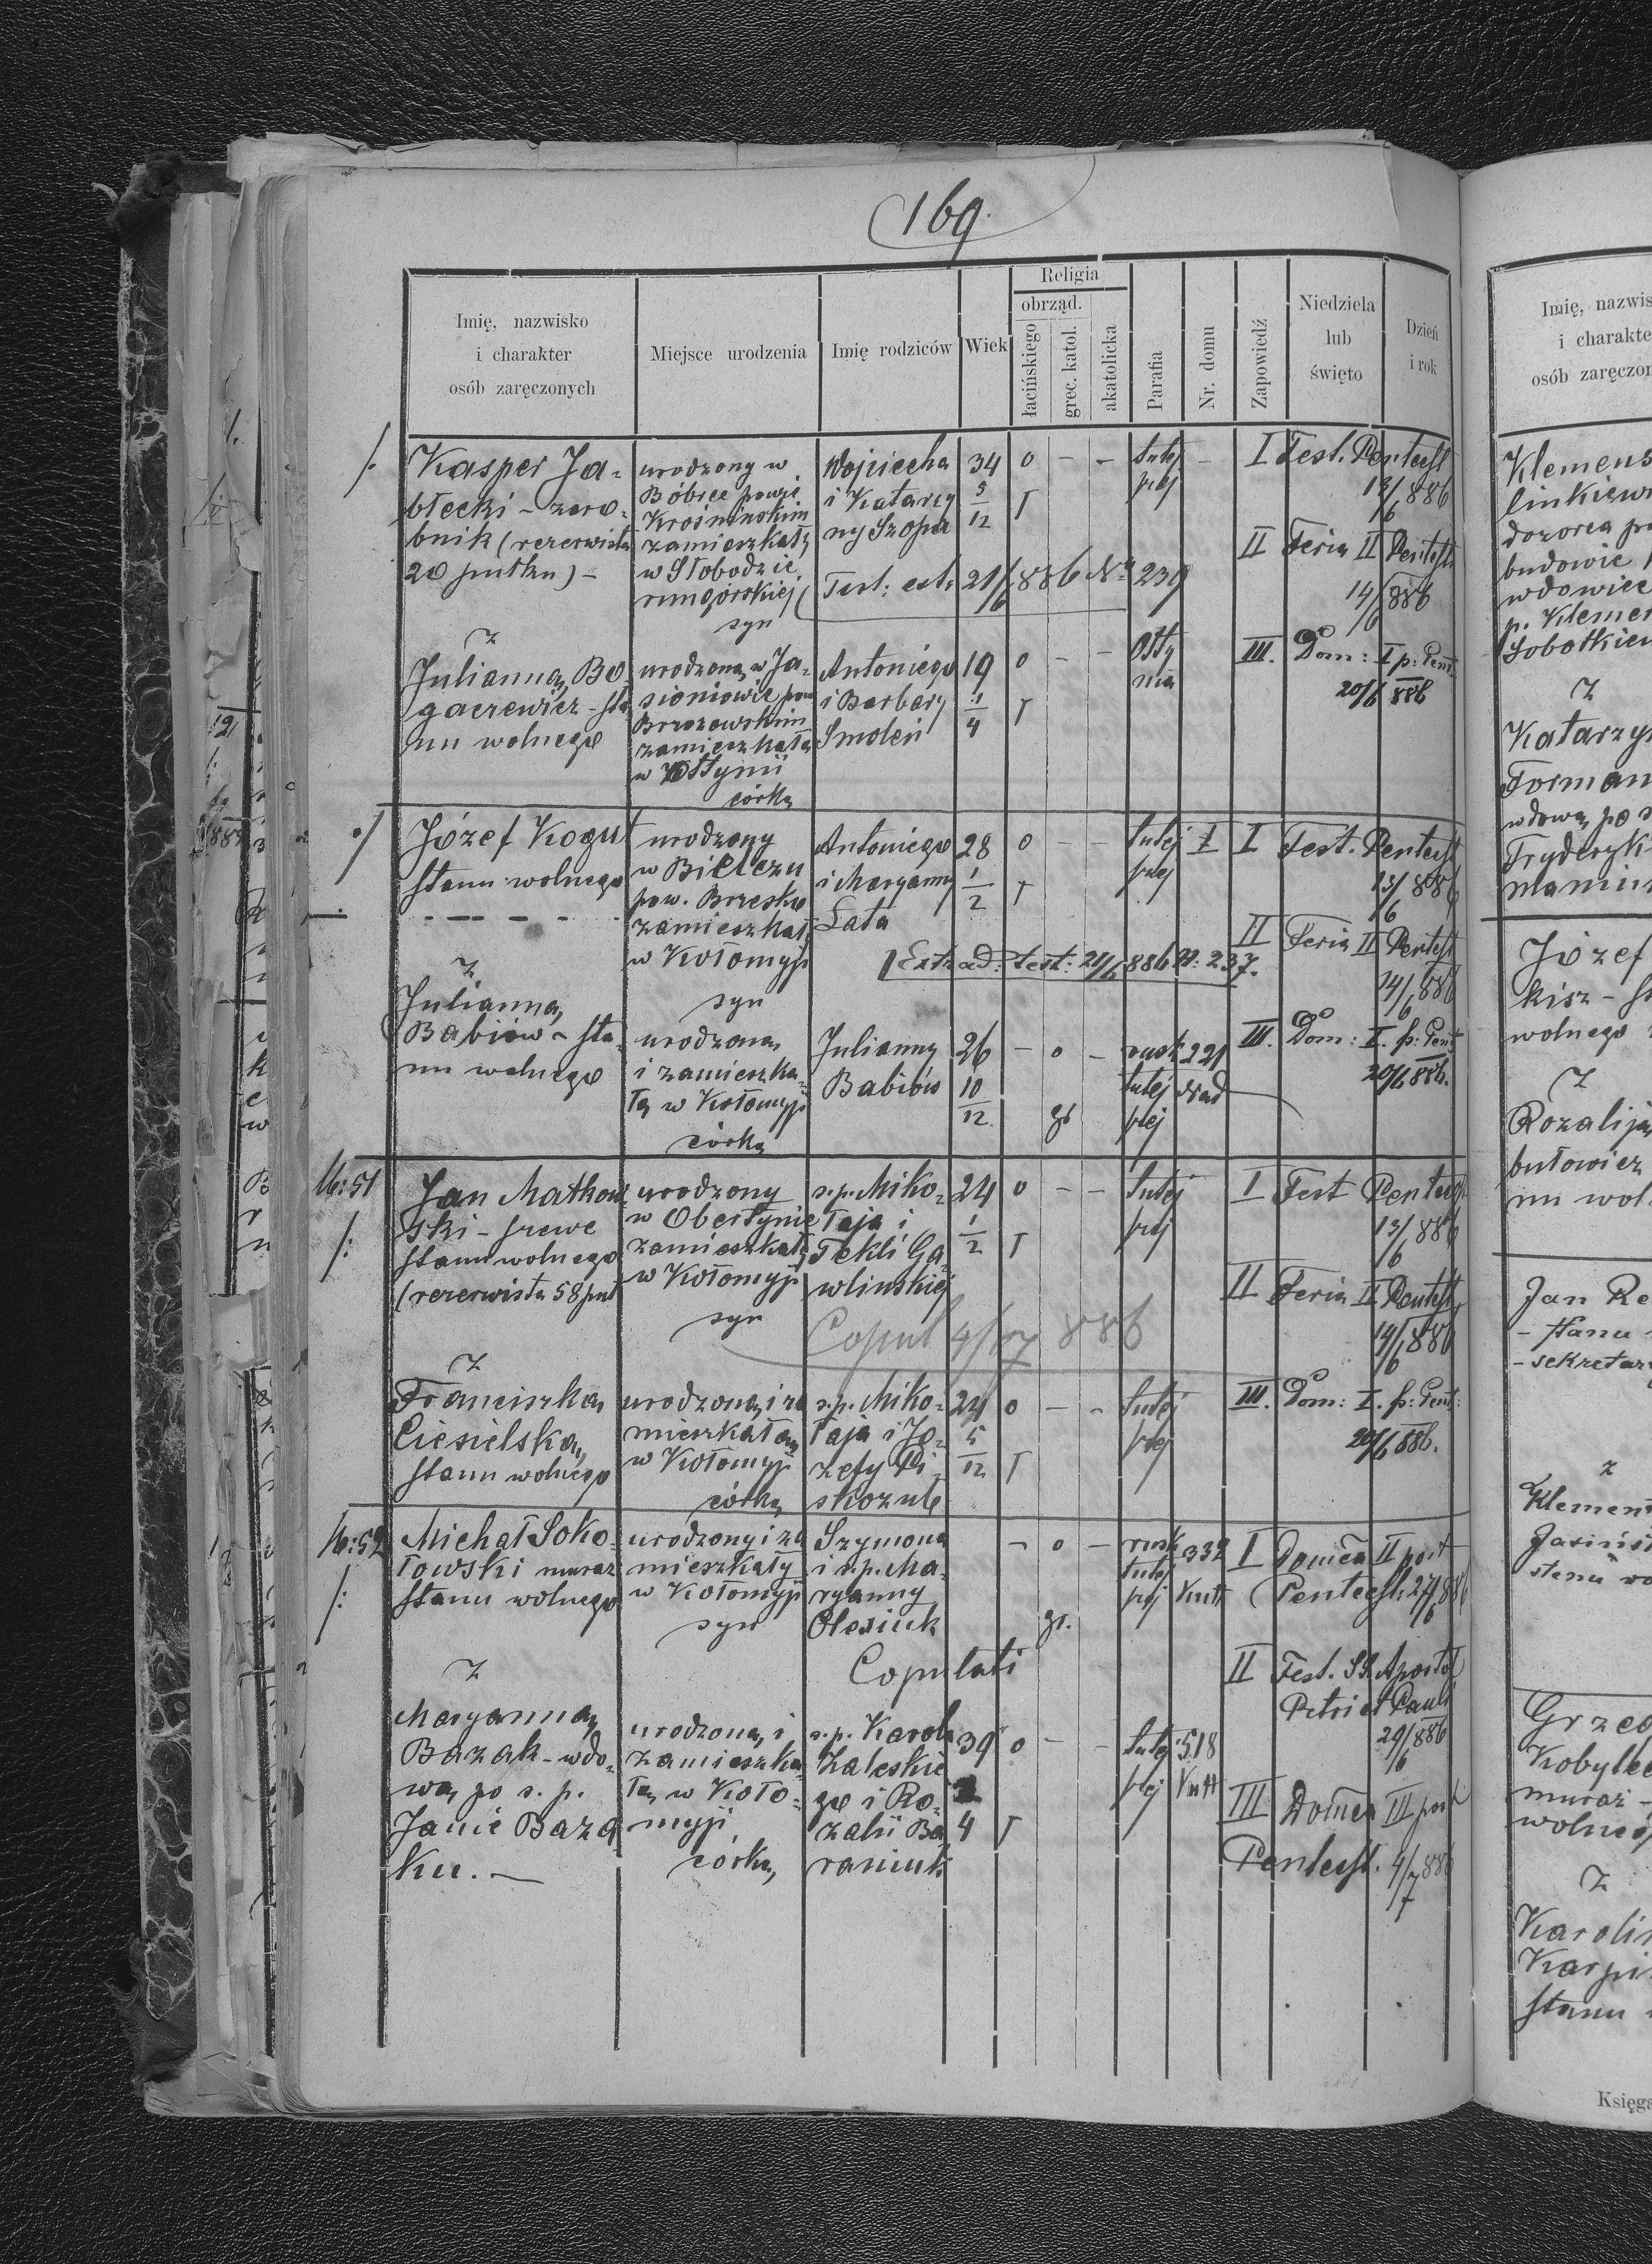 169.
Religia
obrząd.
Imię, nazwisko
i charakter
osób zaręczonych
Miejsce urodzenia
Imię rodziców
Wiek
łacińskiego
grec. katol.
akatolicka
Parafia
Nr. domu
Zapowiedź
Niedziela
lub
święto
Dzień
i rok
Kasper Ja-
błecki - zaro-
bnik (rezerwista
20 pułku) -
urodzony w
Bóbrce powie
Krośnińskim
zamieszkały
w Słobodzie
rungórskiej
syn
Wojciecha
i Katarzy
ny Szopa
34
5
12
o - -
tutej
szej
-
I Fest. Pentecst
13/6 886
II Feria II Pentcst.
14/6 886
III. Dom: I p: Pent
20/6 886
Test: ext. 21/6 886 Nr 239
z
Julianną Bo
gaczewicz - sta
nu wolnego
urodzoną w Ja-
sionowie pow
Brzozowskim
zamieszkałą
w Ottynii
córką
Antoniego
i Barbary
Smoleń
19
1
4
o - -
Otty
nia
Józef Kogut
stanu wolnego
urodzony
w Bielczu
pow. Brzesko
zamieszkały
w Kołomyji
syn
Antoniego
i Maryanny
Łata
28
1
2
o - -
tutej
szej
I
I Fest. Pentecst
13/6 886
II Feria II Pentcst
14/6 886
III. Dom: I. p: Pent
20/6 886.
Extrad: test: 21/6 886 N: 237.
z
Julianną
Babiów - sta-
nu wolnego
urodzoną
i zamieszka-
łą w Kołomyji
córką
Julianny
Babiów
26
10
12.
- o -
rusk
tutej
szej
221
gr
16:51
Jan Matkow
ski - szewc
stanu wolnego
(rezerwista 58 puł
urodzony
w Obertynie
zamieszkały
w Kołomyji
syn
s.p. Miko-
łaja i
Tekli Ga-
wlinskiej
24
1
2
o - -
tutej
szej
I Fest Pentecst
13/6 886
II Feria II Pentcst
14/6 886
III. Dom: I. p: Pent:
20/6 886.
Copul 4/7 886
z
Franciszką
Ciesielską,
stanu wolnego
urodzoną i za
mieszkałą
w Kołomyji
córką
s.p. Miko-
łaja i Jó-
zefy Pi-
skozub
24
5
12
o - -
tutej
szej
16:52
Michał Soko-
łowski murarz
stanu wolnego
urodzony i za
mieszkały
w Kołomyji
syn
Szymona
i s.p. Ma-
ryanny
Olexiuk
- o -
gr.
rusk
tutej
szej
332
Kutt
I Domca II post
Pentecst. 27/6 886
Copulati
II Fest. SS. Apostol
Petri et Pauli
29/6 886
z
Maryanną
Bazak - wdo-
wą po s. p.
Janie Baza
ku. -
urodzoną i
zamieszka-
łą w Koło-
myji
córką
s.p. Karola
Zaleskie
go i Ro-
zalii Ba
raniuk
39
4
o - -
tutej
szej
518
Kutt
III Domca III post
Pentecst. 4/7 886
Imię, nazwis
i charakte
osób zaręczon
Klemens
linkiewi
dozorca pr
budowie
wdowiec
p. Klemen
Sobotkiew
z
Katarzyn
Forman
wdową po
Fryderyk
Józef
kisz - st
wolnego
z
Rozaliją
butowicz
nu wol
Jan Re
- stanu
- sekretarz
z
Klement
Jasińsk
stanu wo
Grzeg
Kobylec
murarz -
wolneg
z
Karolin
Karpi
stanu
Księga